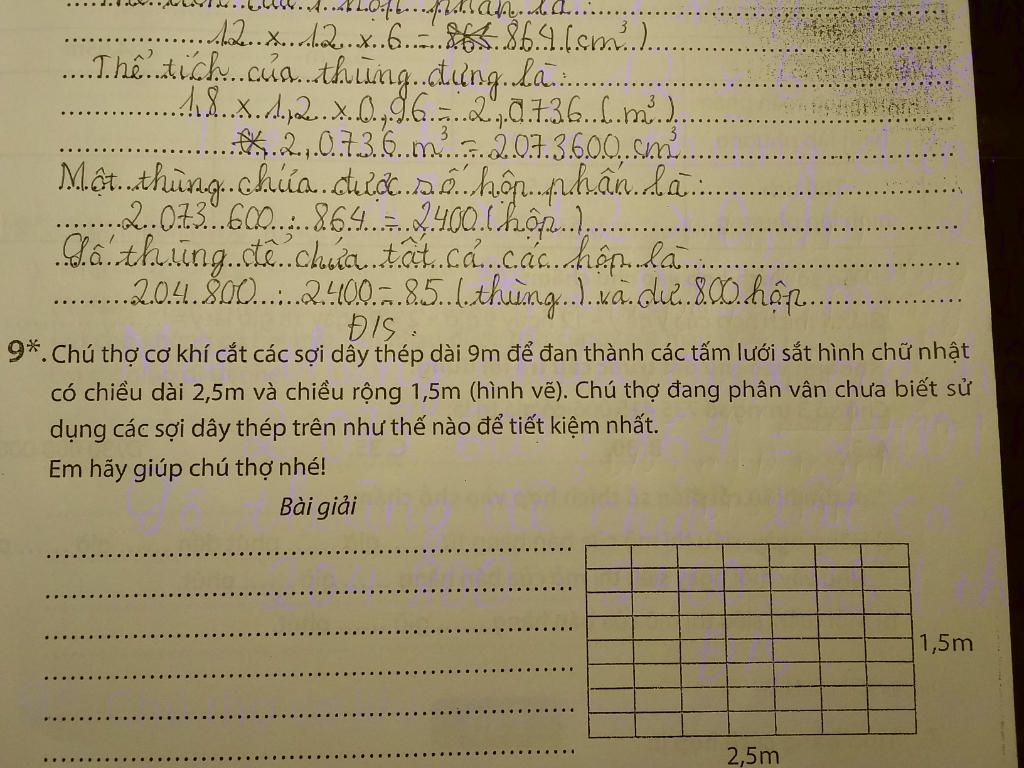 Thể tích của 1 hộp phấn là:
12 x 12 x 6 = 864 (cm³)
Thể tích của thùng đựng là:
1,8 x 1,2 x 0,96 = 2,0736 (m³)
2,0736 m³ = 2073600 cm³
Một thùng chứa được số hộp phấn là:
2 073 600 : 864 = 2400 (hộp)
Số thùng để chứa tất cả các hộp là:
204 800 : 2400 = 85 (thùng) và dư 800 hộp
Đ/S:
9*. Chú thợ cơ khí cắt các sợi dây thép dài 9m để đan thành các tấm lưới sắt hình chữ nhật
có chiều dài 2,5m và chiều rộng 1,5m (hình vẽ). Chú thợ đang phân vân chưa biết sử
dụng các sợi dây thép trên như thế nào để tiết kiệm nhất.
Em hãy giúp chú thợ nhé!
Bài giải
1,5m
2,5m